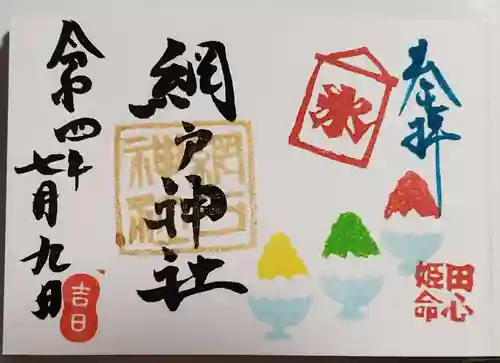 奉拝
氷
田心
姫命
網戸神社
網戸
神社
令和四年
七月九日
吉日